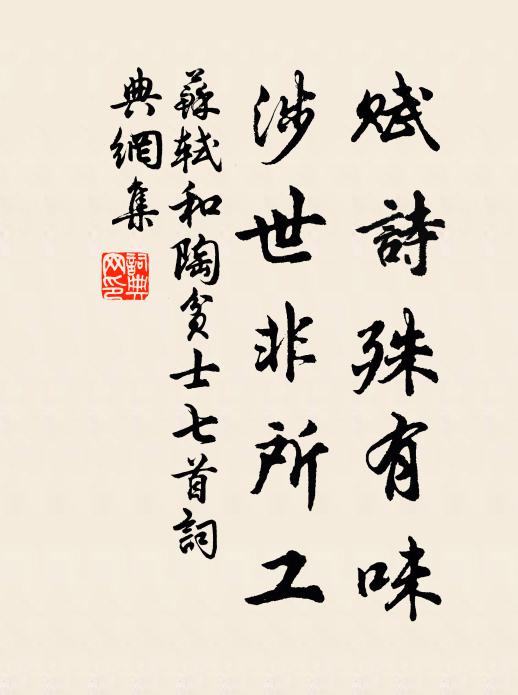 賦詩殊有味
涉世非所工
蘇軾和陶貧士七首詞
典網集
詞典
网印